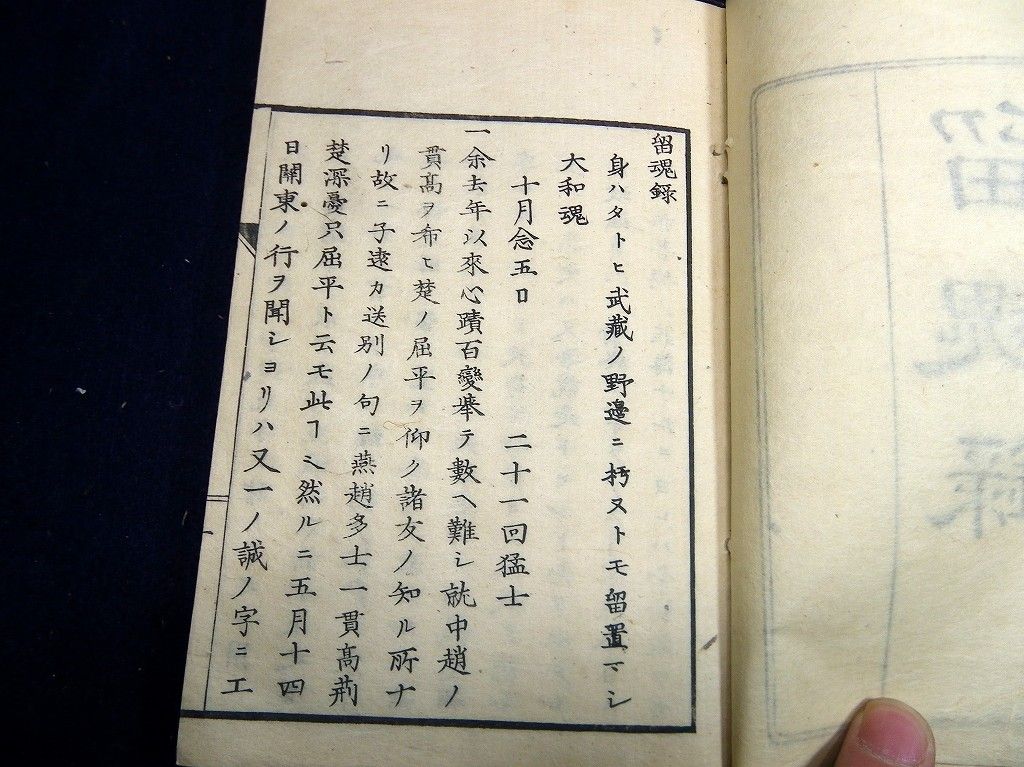 留魂録
身ハタトヒ武藏ノ野邊ニ朽ヌトモ留置マシ
大和魂
十月念五日 二十一回猛士
一余去年以來心蹟百變擧テ數ヘ難シ就中趙ノ
貫高ヲ希ヒ楚ノ屈平ヲ仰ク諸友ノ知ル所ナ
リ故ニ子遠カ送別ノ句ニ燕趙多士一貫高荊
楚深憂只屈平ト云モ此ヿミ然ルニ五月十四
日關東ノ行ヲ聞シヨリハ又一ノ誠ノ字ニ工